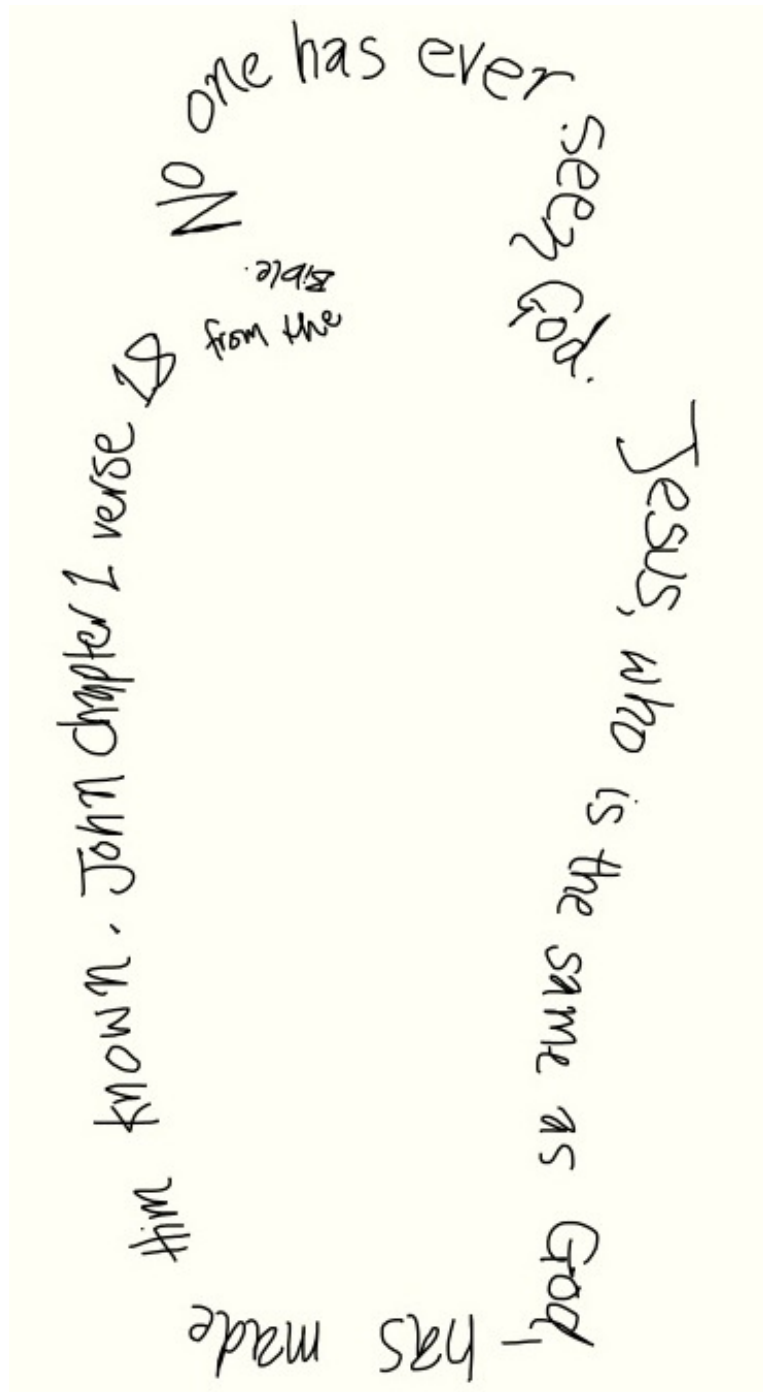 No one has ever seen God. Jesus, who is the same as God, has made Him known. John chapter 1 verse 18 from the Bible.